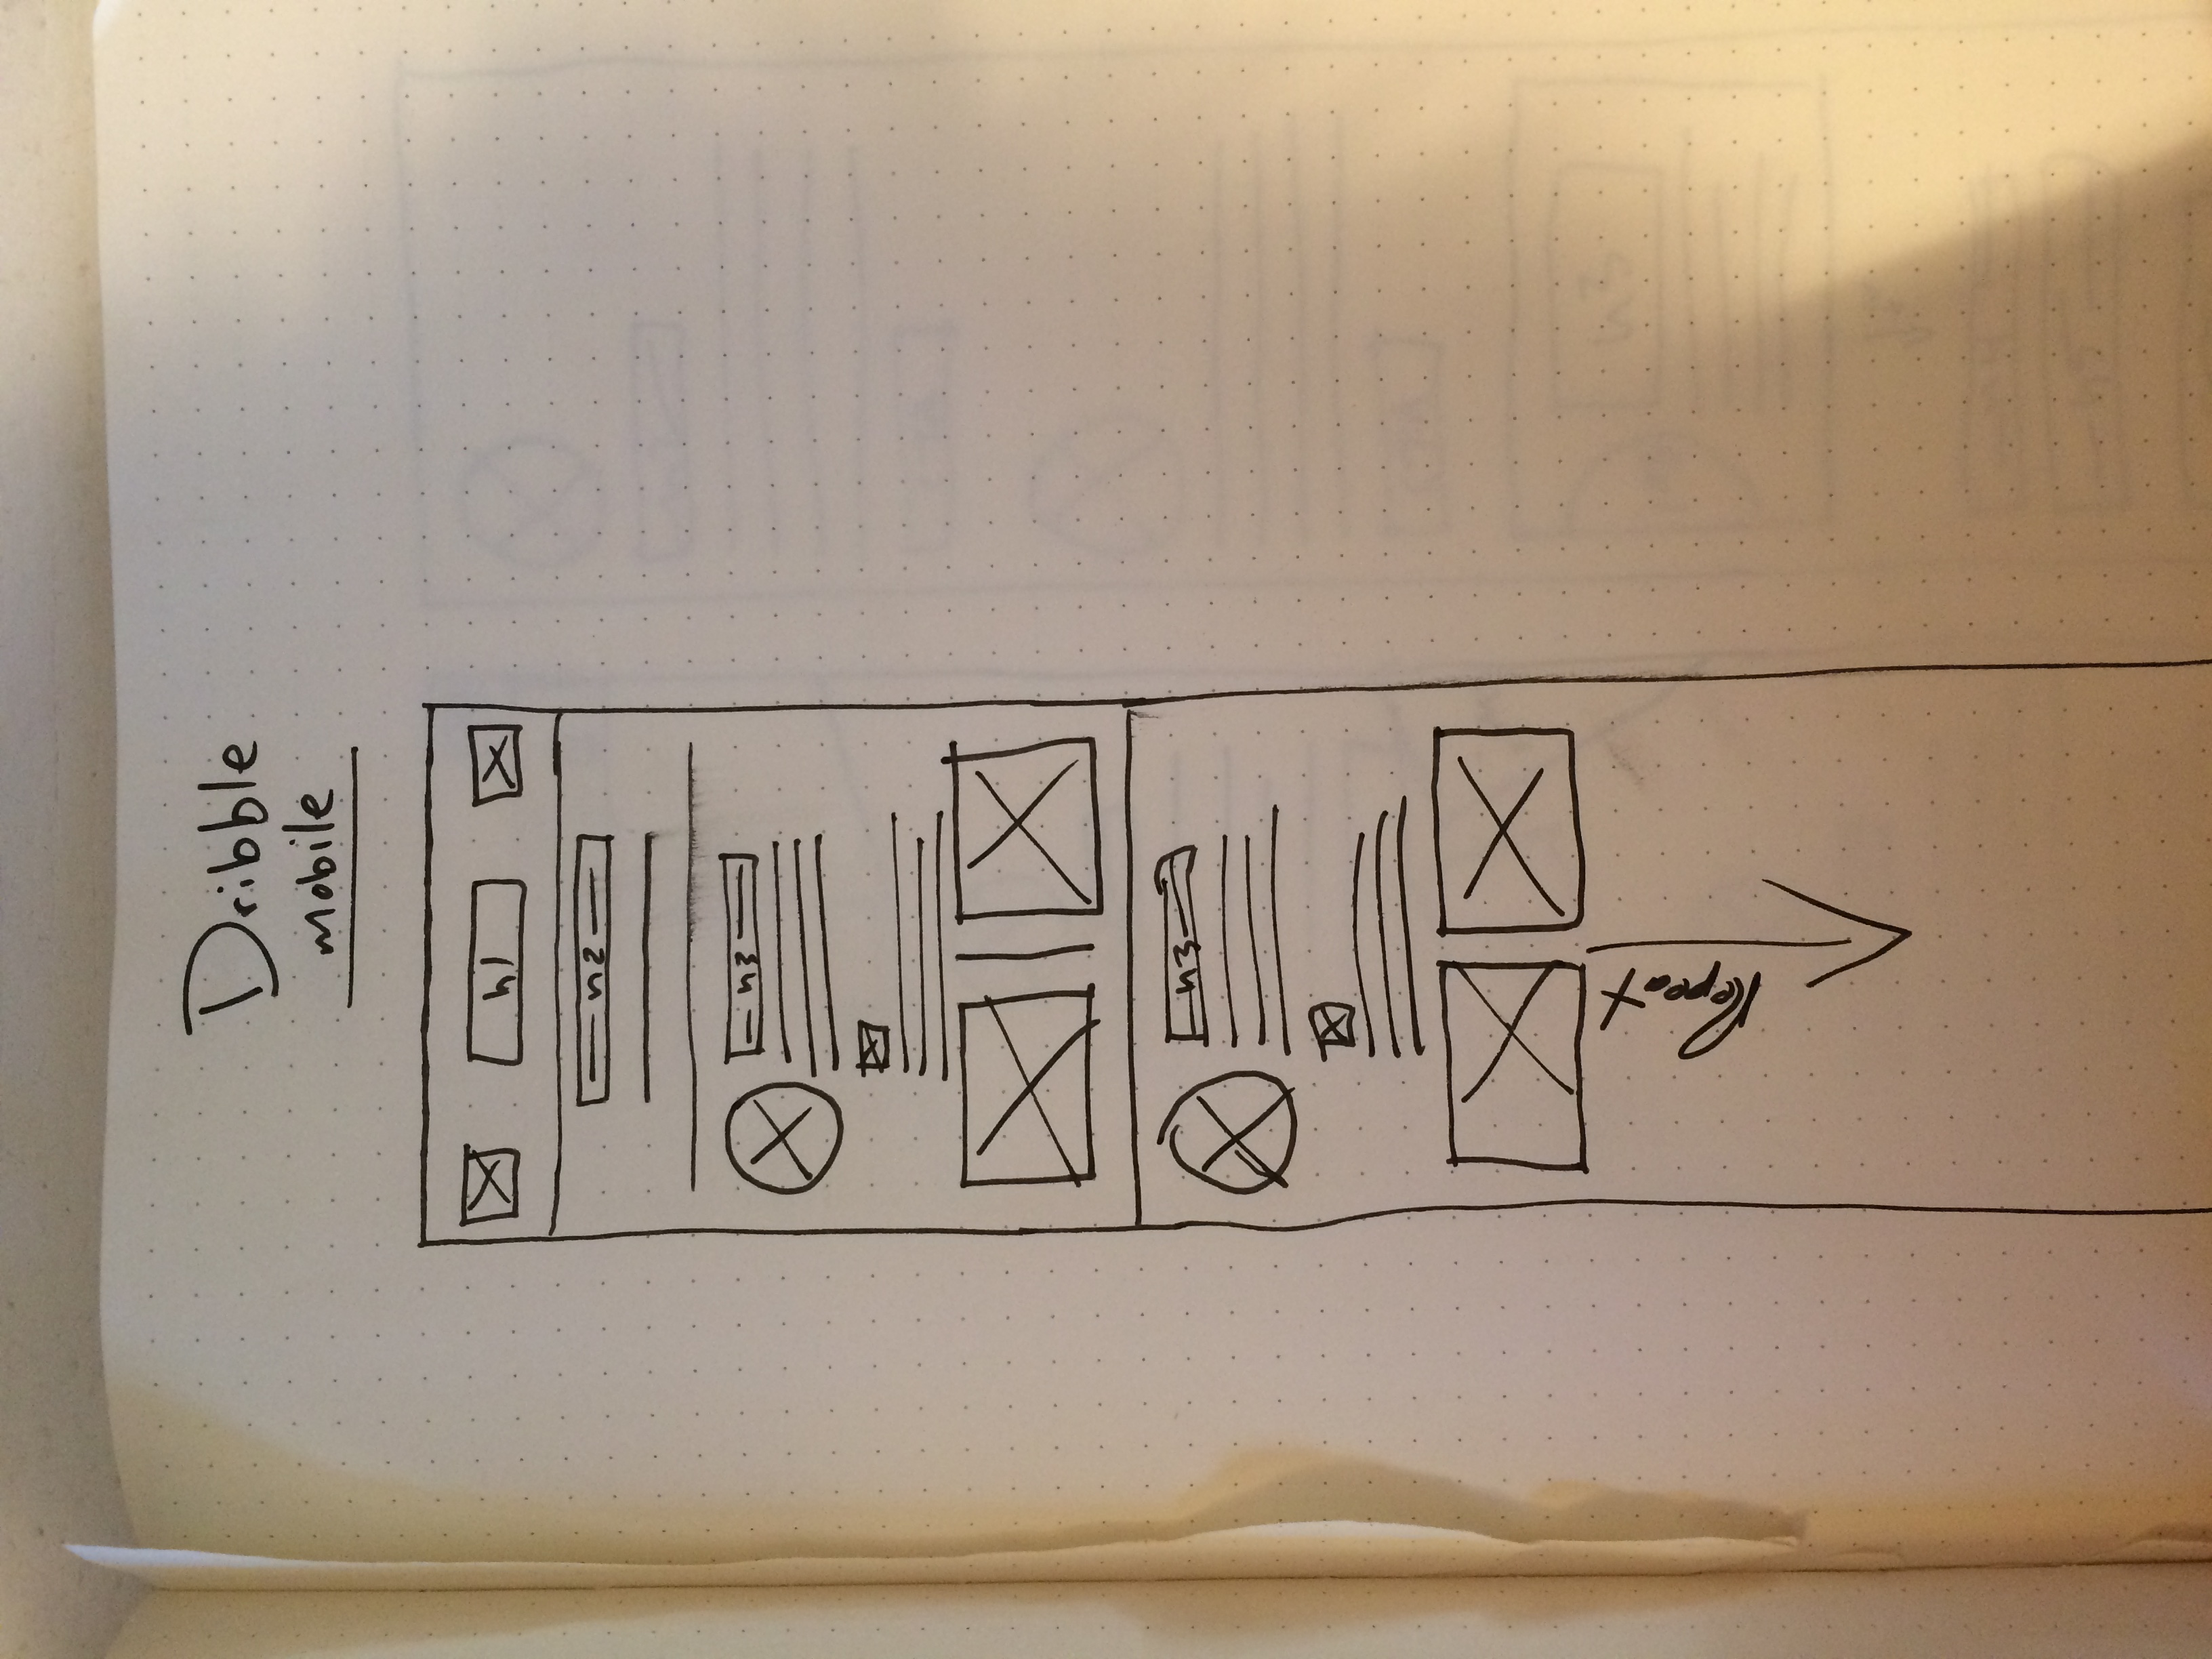 Dribble
mobile
h1
h2
h3
h3
Repeat